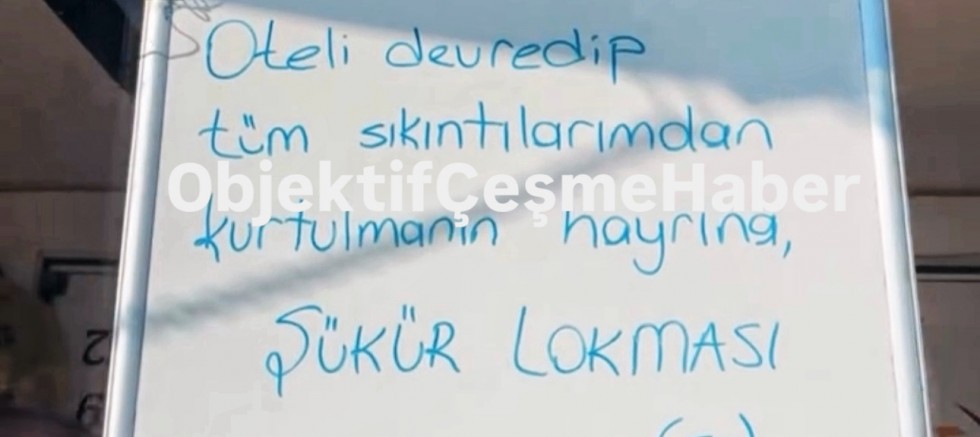 Oteli devredip
tüm sıkıntılarımdan
ObjektifÇeşmeHaber
kurtulmanın hayrına,
ŞÜKÜR LOKMASI